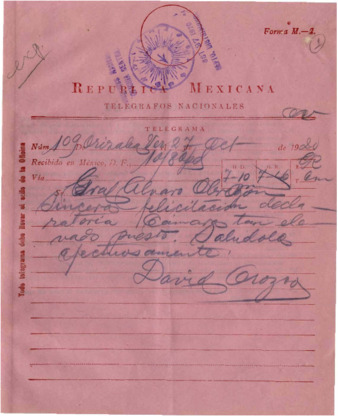 Forma M.—2.
REPUBLICA MEXICANA
TELEGRAFOS NACIONALES
cov
TELEGRAMA
Núm. 109 Orizaba Ver 27 Oct de 1920
Recibido en México, D. F.,
Vía
7-10 7-16 am
Gral Alvaro Obregón
Sincera felicitacion decla-
ratoria Camara tan ele
vado puesto. Saludolo
afectuosamente.
David Orozco
Todo telegrama debe llevar el sello de la Oficina